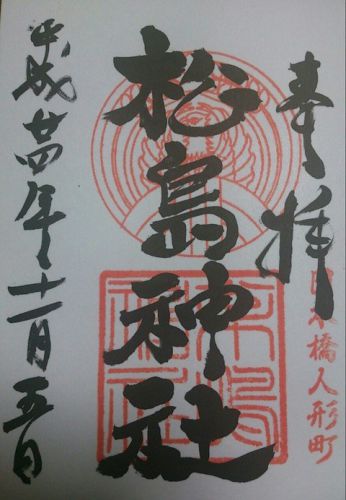 奉拝
日本橋人形町
松島神社
平成廿四年十一月五日